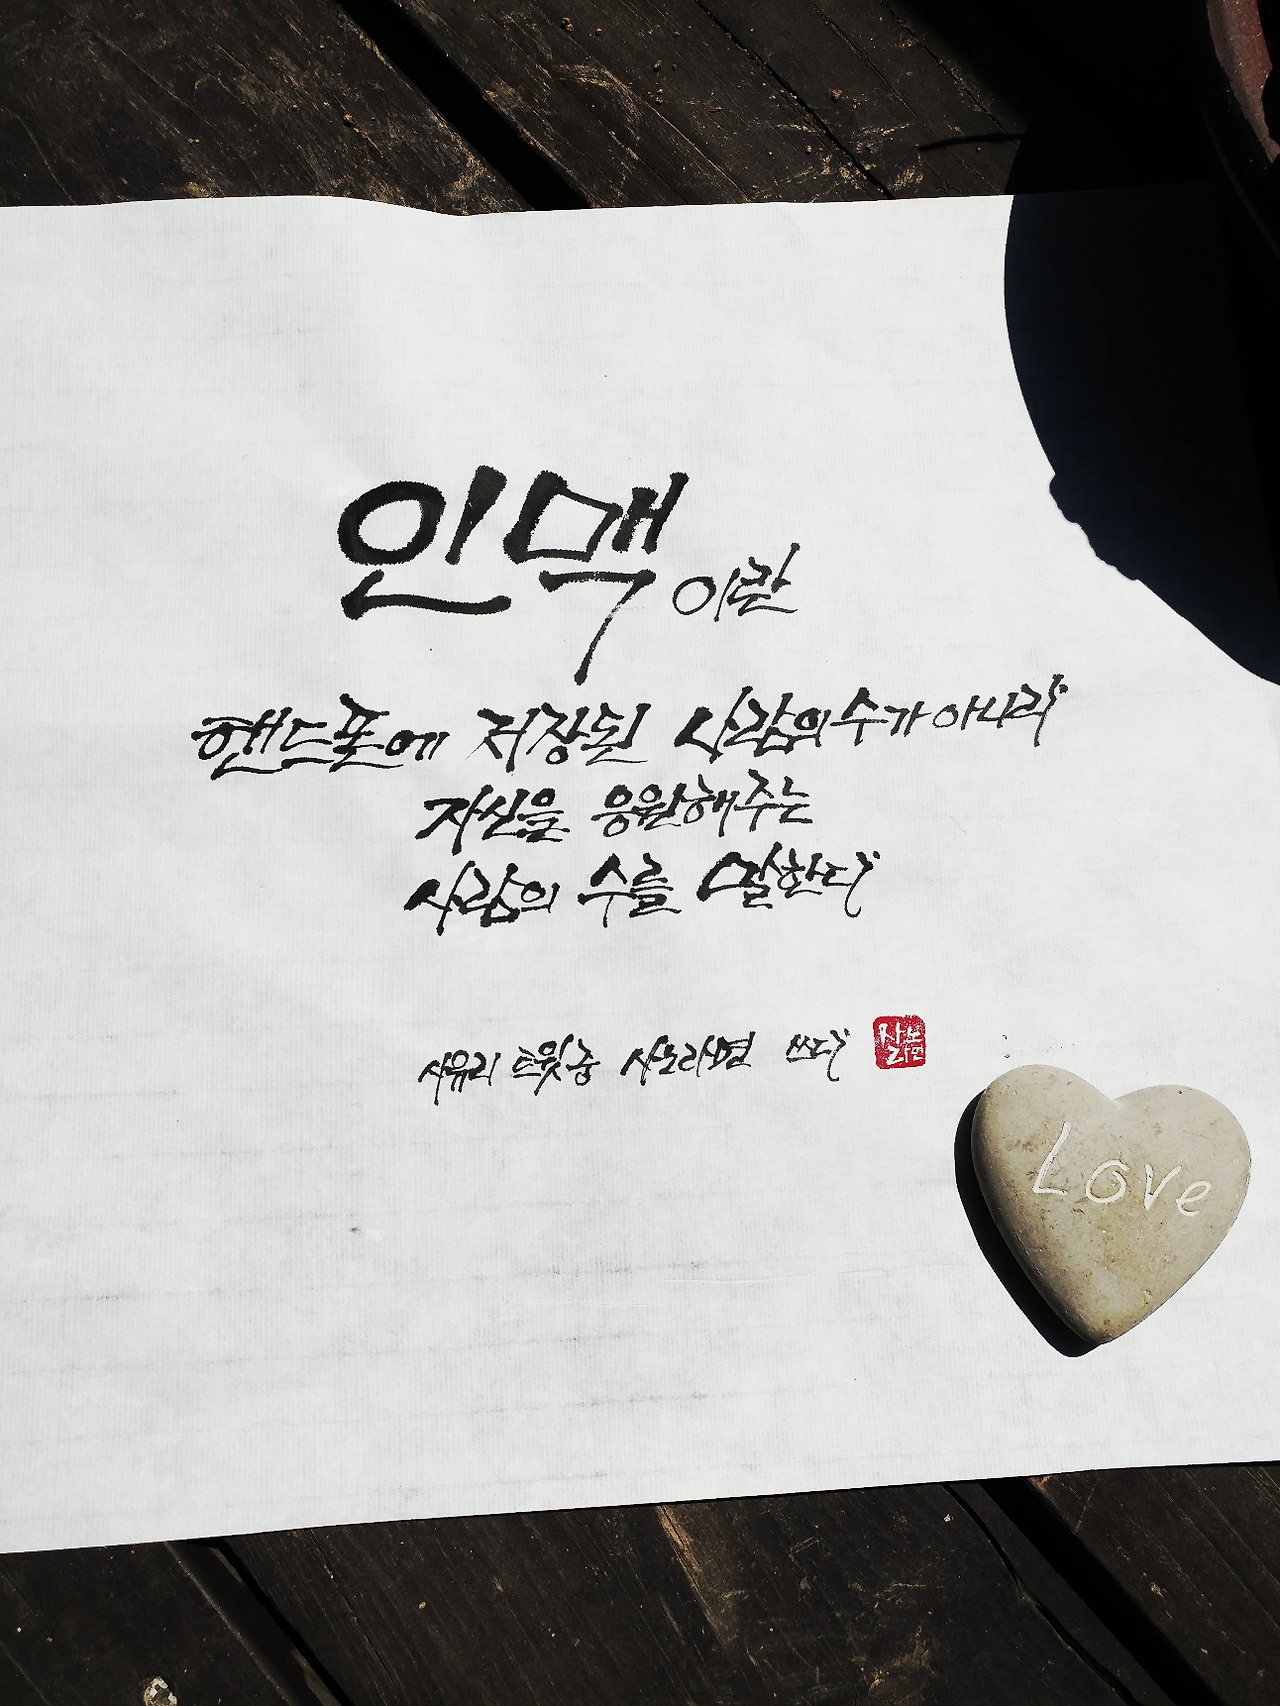 인맥이란
핸드폰에 저장된 사람의 수가 아니라
자신을 응원해주는
사람의 수를 말한다
사유리 트윗중 사노라면 쓰다
Love